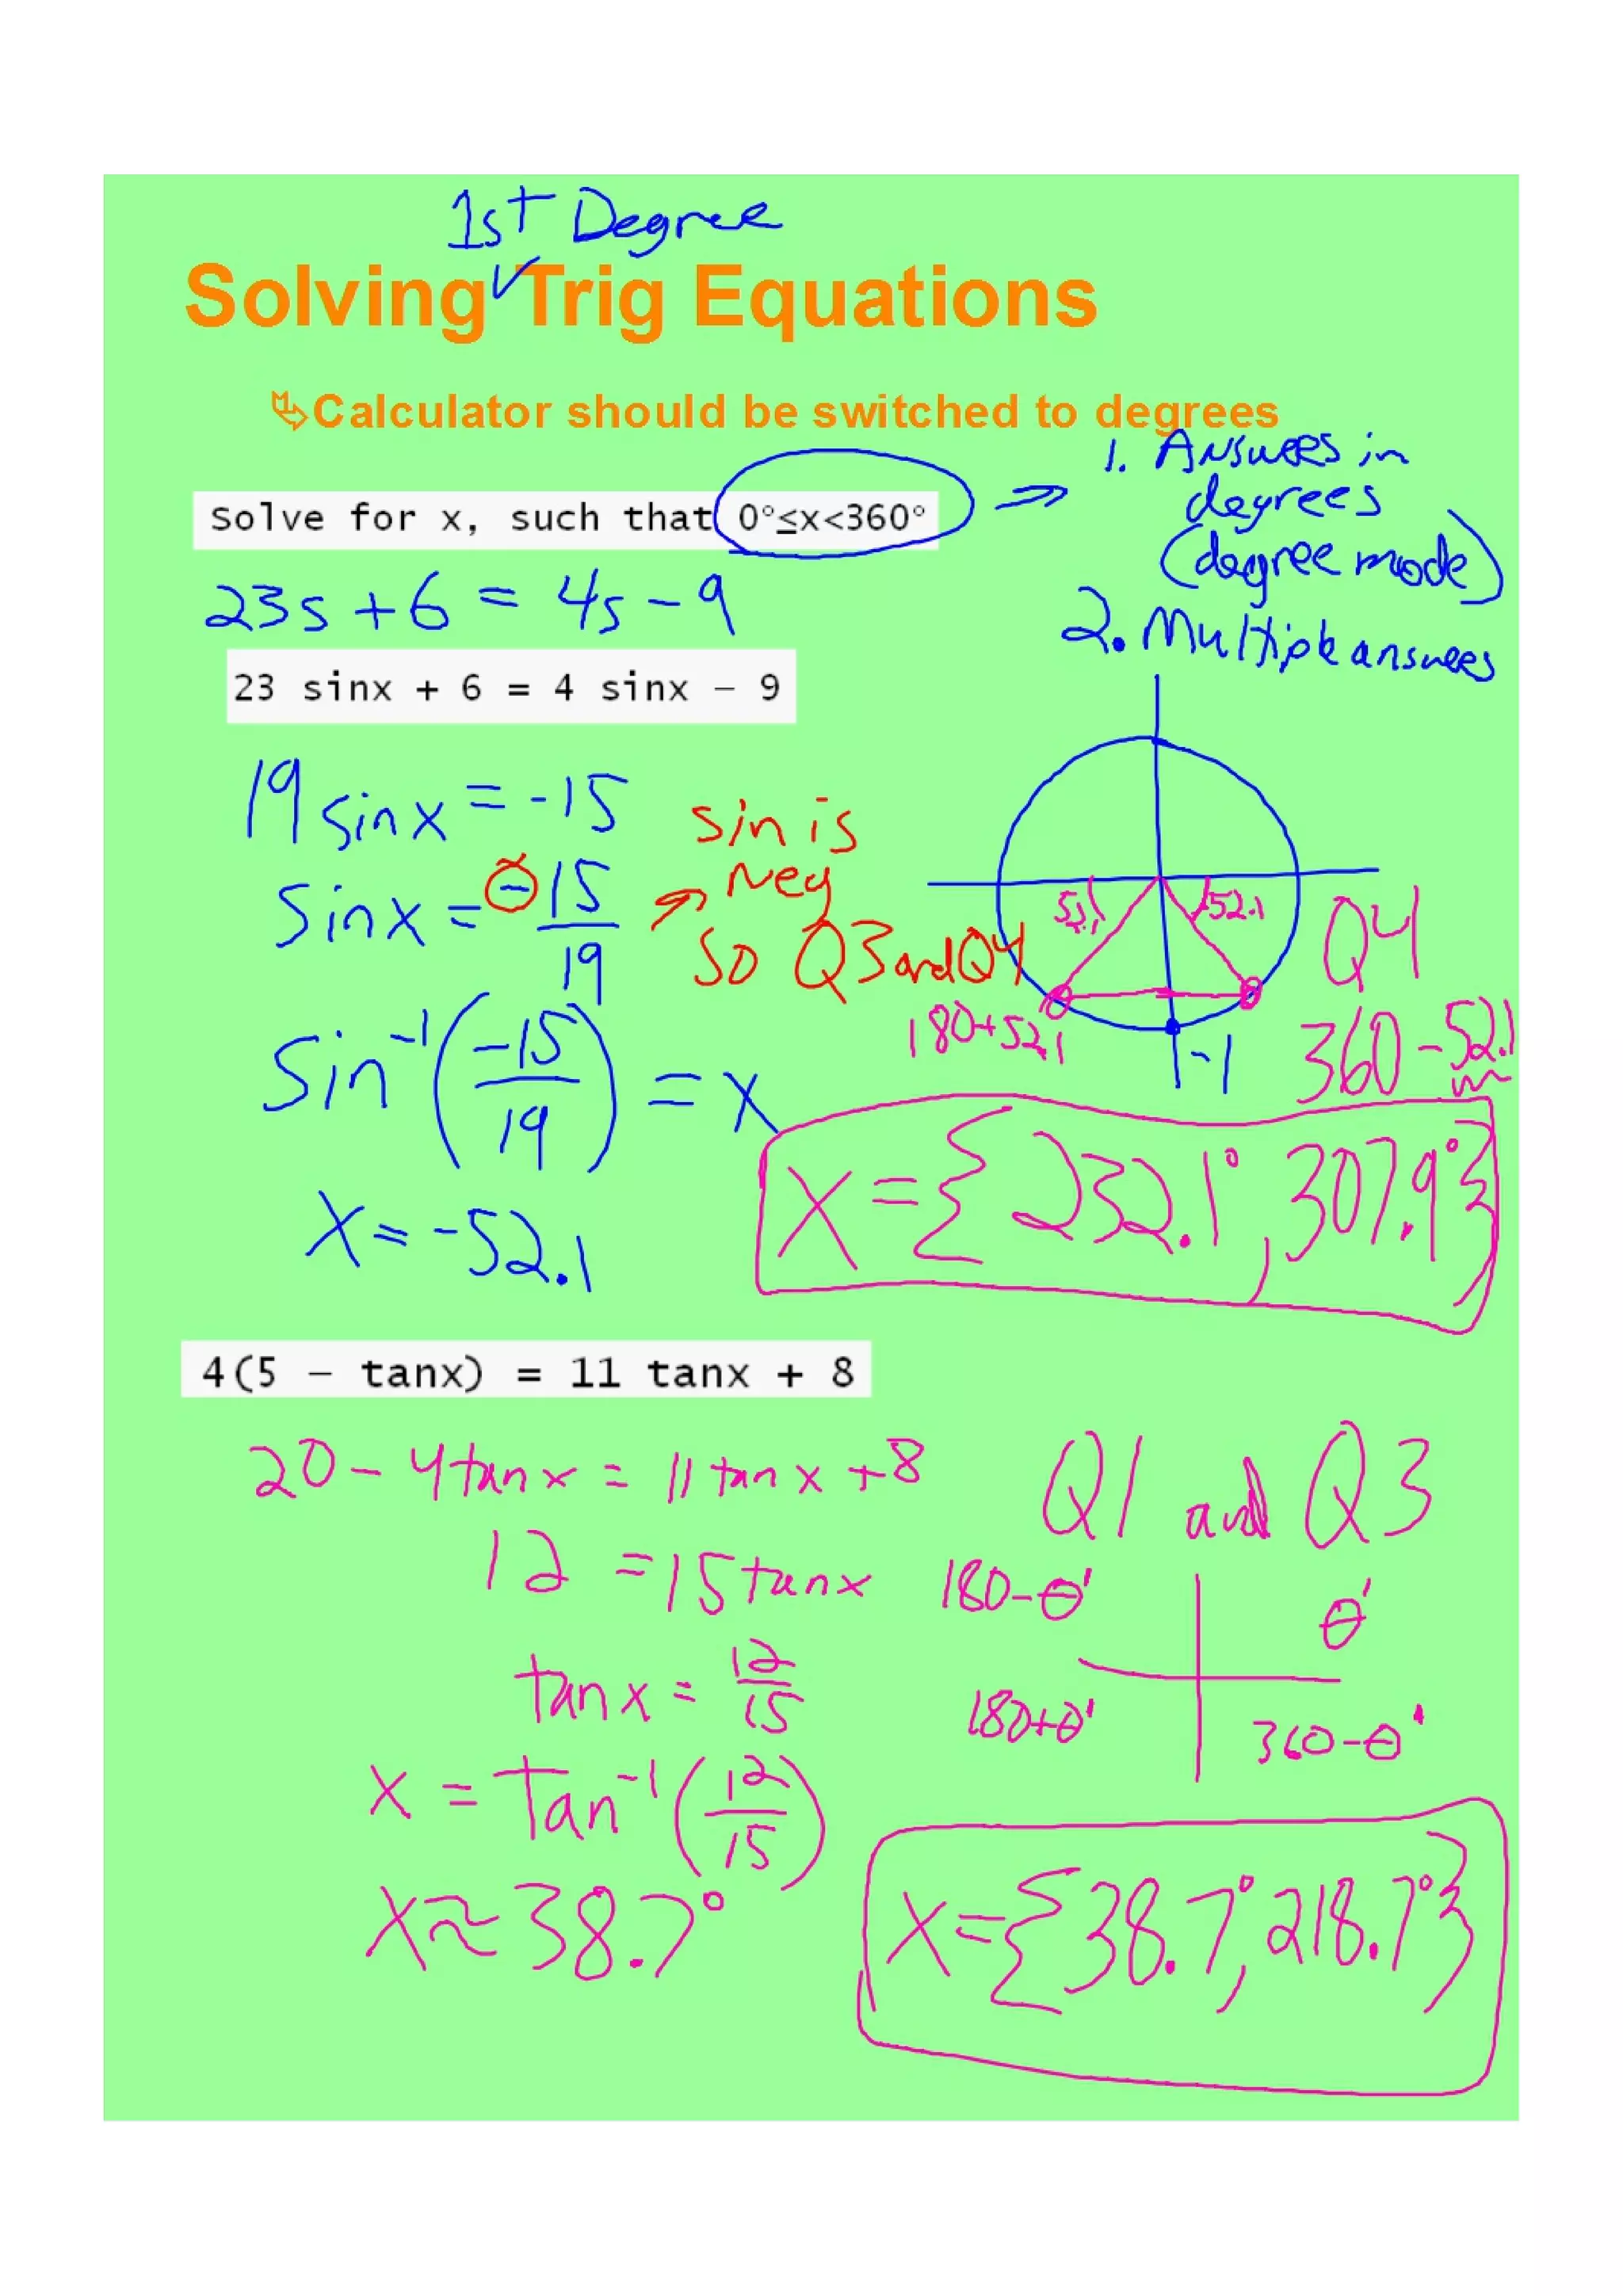 1st Degree
Solving Trig Equations
Calculator should be switched to degrees
Solve for x, such that 0°≤x<360°
⇒ 1. Answers in
degrees
(degree mode)
2. Multiple answers
23s + 6 = 4s - 9
23 sinx + 6 = 4 sinx – 9
19 sinx = -15
sinx = -15/19
sin is
neg
so Q3 and Q4
sin⁻¹(-15/19) = x
x = -52.1
52.1
52.1
180+52.1
-1
Q4
360-52.1
x = {232.1°, 307.9°}
4(5 – tanx) = 11 tanx + 8
20 - 4tanx = 11tanx + 8
12 = 15tanx
tanx = 12/15
x = Tan⁻¹(12/15)
x ≈ 38.7°
Q1 and Q3
180-θ'
θ'
180+θ'
360-θ'
x = {38.7°, 218.7°}